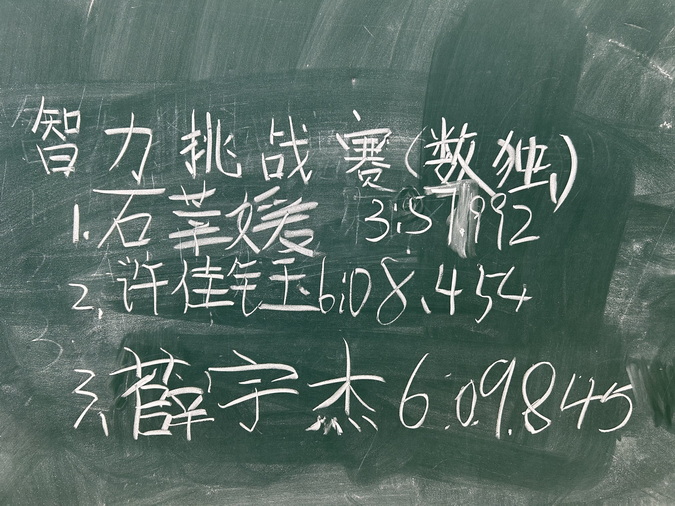 智力挑战赛(数独)
1.石莘媛 3:57.992
2.许佳钰6:08.454
3.薛宇杰 6:09.845